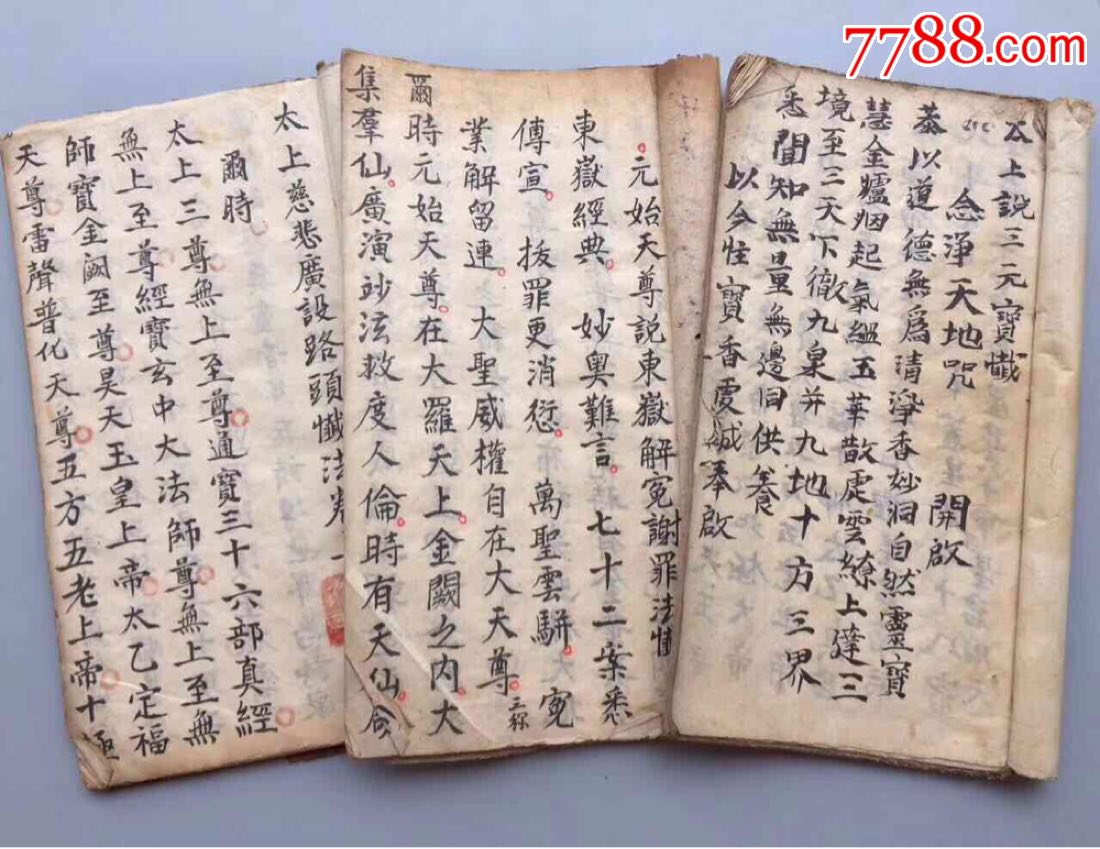 7788.com
太上說三元寶懺
念淨天地咒 開啟
恭以道德無爲清淨香妙洞自然靈寶
慧金爐烟起氣緼玉華散處雲繚上達三
境至三天下徹九泉并九地十方三界
悉聞知無量無邊同供養
以今性寶香虔誠奉啟
元始天尊説東嶽解冤謝罪法懺
東嶽經典妙奥難言七十二案悉
傳宣拔罪更消愆萬聖雲駢大冤
業解留連大聖威權自在大天尊三称
爾時元始天尊在大羅天上金闕之内大
集羣仙廣演玅法救度人倫時有天仙
太上慈悲廣設路頭懺法卷一
爾時
太上三尊無上至尊通寶三十六部真經
無上至尊經寶玄中大法師尊無上至無
師寶金闕至尊昊天玉皇上帝太乙定福
天尊雷聲普化天尊五方五老上帝十極